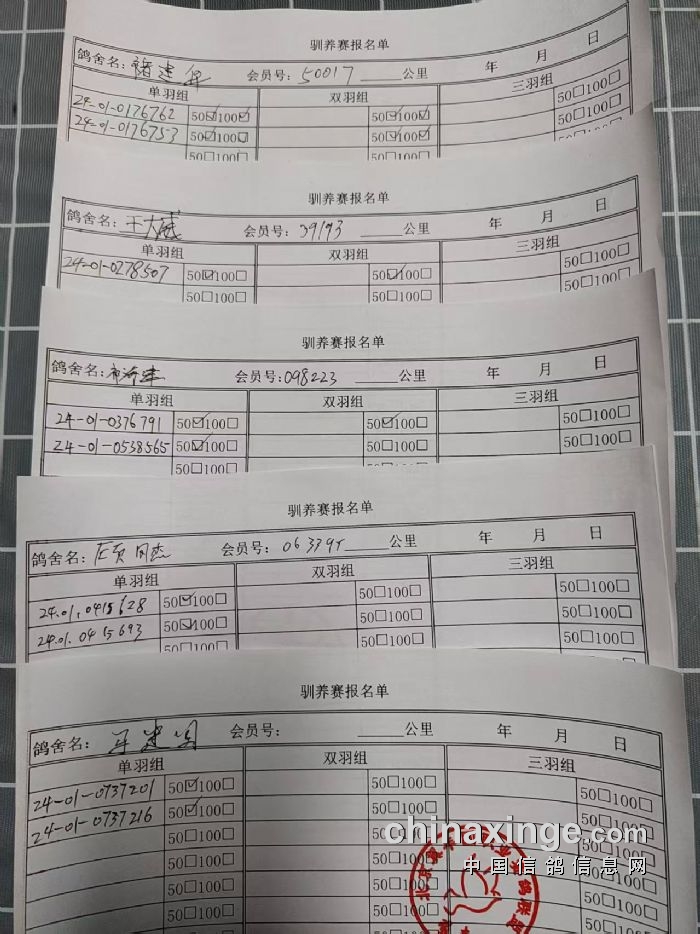 驯养赛报名单
鸽舍名：褚建华 会员号：50017 公里 年 月 日
单羽组 双羽组 三羽组
24-01-0176762 50☑100☑ 50☑100☑ 50□100□
24-01-0176753 50☑100☑ 50☑100☑ 50□100□
50□100□ 50□100□
驯养赛报名单
鸽舍名： 会员号：39193 公里 年 月 日
单羽组 双羽组 三羽组
24-01-0278507 50☑100□ 50☑100□ 50□100□
50□100□ 50□100□ 50□100□
驯养赛报名单
鸽舍名： 会员号：098223 公里 年 月 日
单羽组 双羽组 三羽组
24-01-0376791 50☑100□ 50☑100□ 50□100□
24-01-0538565 50☑100□ 50□100□ 50□100□
50□100□ 50□100□
驯养赛报名单
鸽舍名： 会员号： 公里 年 月 日
单羽组 双羽组 三羽组
24.01.0415628 50☑100□ 50□100□ 50□100□
24.01.0415693 50☑100□ 50□100□ 50□100□
50□100□ 50□100□ 50□100□
驯养赛报名单
鸽舍名： 会员号： 公里 年 月 日
单羽组 双羽组 三羽组
24-01-0737201 50☑100□ 50□100□ 50□100□
24-01-0737216 50☑100□ 50□100□ 50□100□
50□100□ 50□100□ 50□100□
50□100□ 50□100□ 50□100□
50□100□ 50□100□ 50□100□
50□100□ 50□100□ 50□100□
chinaxinge.com
中国信鸽信息网